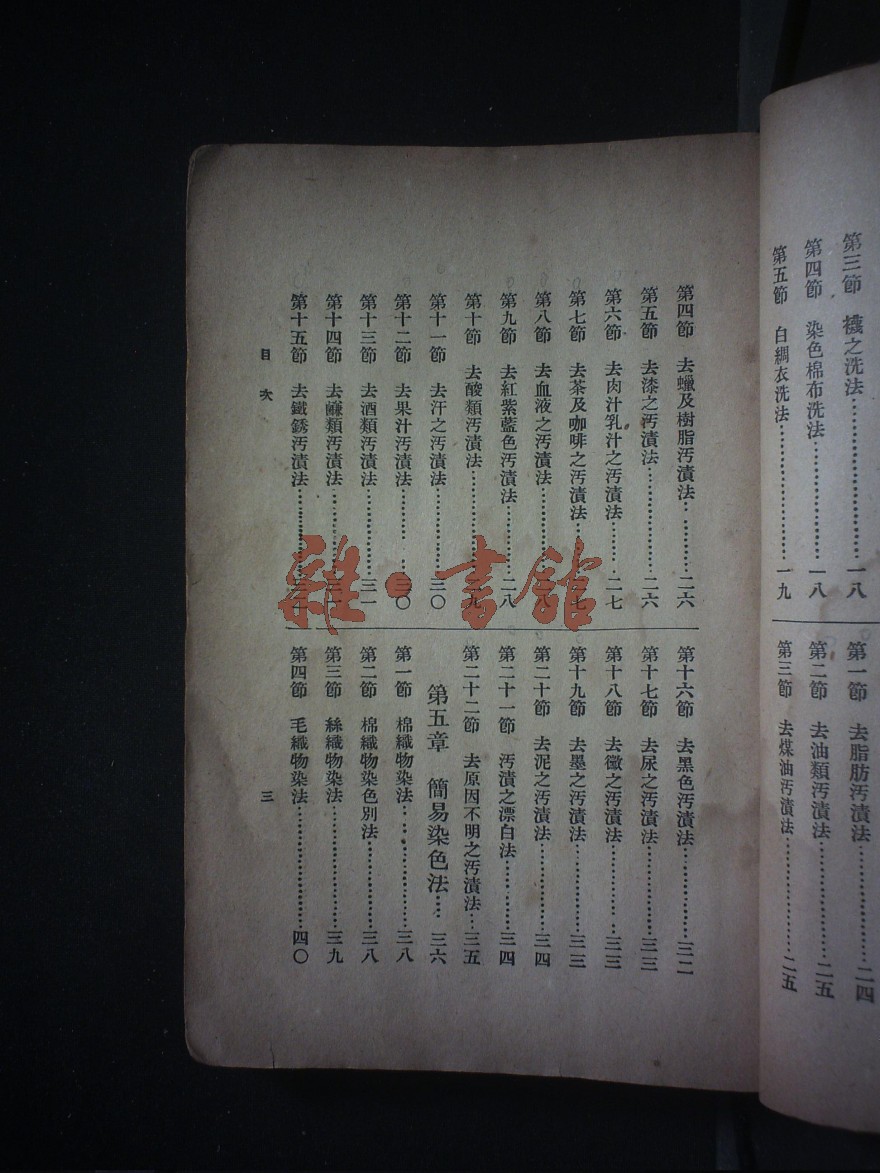 第三節 襪之洗法…………一八
第四節 染色棉布洗法…………一八
第五節 白綢衣洗法…………一九
第一節 去脂肪汚漬法…………二四
第二節 去油類汚漬法…………二五
第三節 去煤油汚漬法…………二五
第四節 去蠟及樹脂汚漬法…………二六
第五節 去漆之汚漬法…………二六
第六節 去肉汁乳汁之汚漬法…………二七
第七節 去茶及咖啡之汚漬法…………七
第八節 去血液之汚漬法…………
第九節 去紅紫藍色汚漬法…………二八
第十節 去酸類汚漬法…………九
第十一節 去汗之汚漬法…………三〇
第十二節 去果汁汚漬法…………三〇
第十三節 去酒類汚漬法…………三一
第十四節 去鹻類汚漬法…………
第十五節 去鐵銹汚漬法…………
第十六節 去黑色汚漬法…………三二
第十七節 去尿之汚漬法…………三三
第十八節 去黴之汚漬法…………三三
第十九節 去墨之汚漬法…………三三
第二十節 去泥之汚漬法…………三四
第二十一節 汚漬之漂白法…………三四
第二十二節 去原因不明之汚漬法…三五
第五章 簡易染色法…三六
第一節 棉織物染法…………三八
第二節 棉織物染色別法…………三八
第三節 絲織物染法…………三九
第四節 毛織物染法…………四〇
目次
三
雜·書館